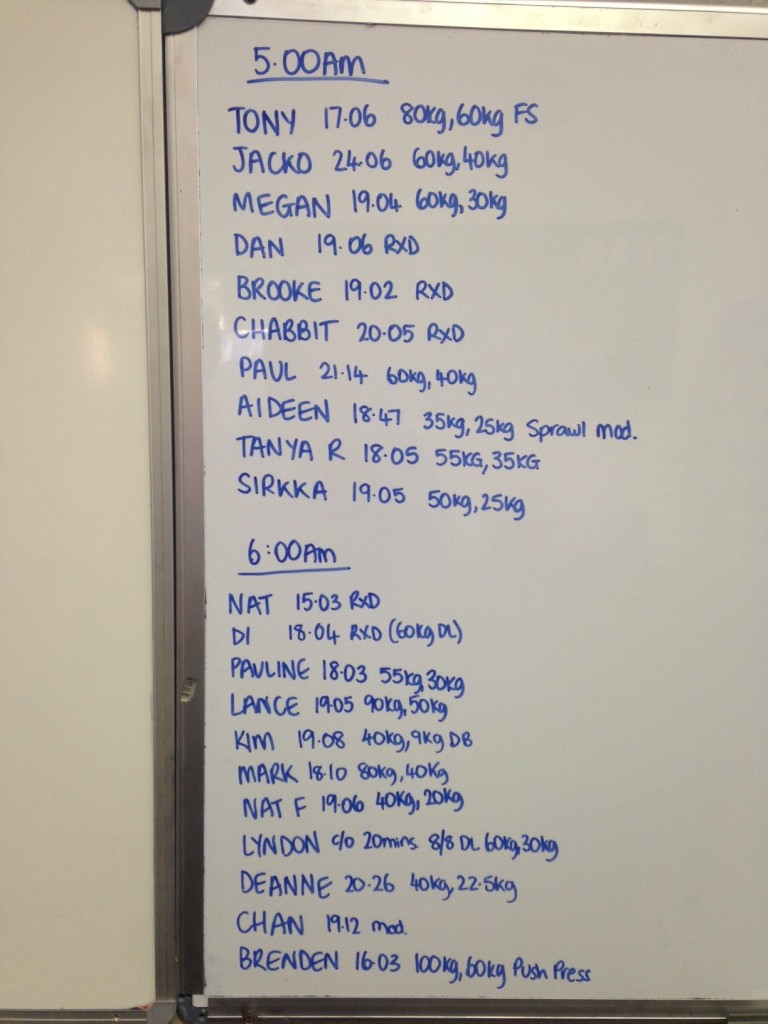 5.00AM
TONY 17.06 80kg, 60kg FS
JACKO 24.06 60kg, 40kg
MEGAN 19.04 60kg, 30kg
DAN 19.06 RXD
BROOKE 19.02 RXD
CHABBIT 20.05 RXD
PAUL 21.14 60kg, 40kg
AIDEEN 18.47 35kg, 25kg Sprawl mod.
TANYA R 18.05 55KG, 35KG
SIRKKA 19.05 50kg, 25kg
6:00AM
NAT 15.03 RXD
DI 18.04 RXD (60kg DL)
PAULINE 18.03 55kg, 30kg
LANCE 19.05 90kg, 50kg
KIM 19.08 40kg, 9kg DB
MARK 18.10 80kg, 40kg
NAT F 19.06 40kg, 20kg
LYNDON c/o 20mins. 8/8 DL 60kg, 30kg
DEANNE 20.26 40kg, 22.5kg
CHAN 19.12 mod.
BRENDEN 16.03 100kg, 60kg Push Press